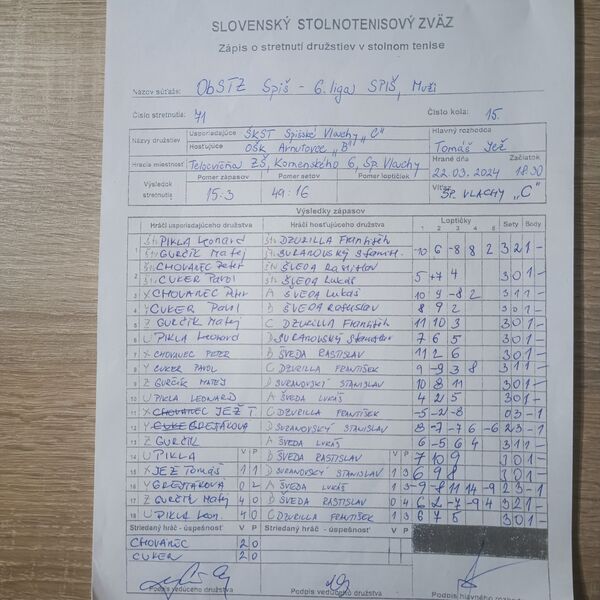 SLOVENSKÝ STOLNOTENISOVÝ ZVÄZ
Zápis o stretnutí družstiev v stolnom tenise
Názov súťaže: ObSTZ Spiš - 6. liga SPIŠ, Muži
Číslo stretnutia: 71 Číslo kola: 15.
Názvy družstiev Usporiadajúce ŠKST Spišské Vlachy "C" Hlavný rozhodca
Hosťujúce OŠK Arnutovce "B" Tomáš Jež
Hracia miestnosť Telocvičňa ZŠ, Komenského 6, Sp. Vlachy Hrané dňa Začiatok
Výsledok stretnutia Pomer zápasov Pomer setov Pomer loptičiek 22.03.2024 18:30
15:3 49:16 Víťaz SP. VLACHY "C"
Výsledky zápasov
Hráči usporiadajúceho družstva Hráči hosťujúceho družstva Loptičky Sety Body
1 2 3 4 5
1 PIKLA Leonard DZURILLA František -10 6 -8 8 2 3 2 1 -
GURČÍK Matej SURANOVSKÝ
2 CHOVANEC Peter ŠVEDA
CUKER Pavol ŠVEDA Lukáš 5 7 4 3 0 1 -
3 X CHOVANEC A ŠVEDA Lukáš 10 9 -8 2 3 1 1 -
4 Y CUKER Pavol B ŠVEDA Rastislav 8 9 2 3 0 1 -
5 Z GURČÍK Matej C DZURILLA František 11 10 3 3 0 1 -
6 U PIKLA Leonard D SURANOVSKÝ Stanislav 7 6 5 3 0 1 -
7 X CHOVANEC PETER B ŠVEDA RASTISLAV 11 2 6 3 0 1 -
8 Y CUKER PAVOL C DZURILLA FRANTIŠEK 9 -9 3 8 3 1 1 -
9 Z GURČÍK MATEJ D SURANOVSKÝ STANISLAV 10 8 11 3 0 1 -
10 U PIKLA LEONARD A ŠVEDA LUKÁŠ 4 2 5 3 0 1 -
11 X CHOVANEC JEŽ T C DZURILLA FRANTIŠEK -5 -2 -8 0 3 - 1
12 Y CUKER GREJTÁKOVÁ D SURANOVSKÝ STANISLAV 8 -7 -7 6 -6 2 3 - 1
13 Z GURČÍK A ŠVEDA LUKÁŠ 6 -5 6 4 3 1 1 -
14 U PIKLA V P B ŠVEDA RASTISLAV V P 7 10 9 3 0 1 -
15 X JEŽ Tomáš 1 1 D SURANOVSKÝ STANISLAV 1 3 6 9 8 3 0 1 -
16 Y GREJTÁKOVÁ 0 2 A ŠVEDA LUKÁŠ 1 3 -9 -8 11 14 -9 2 3 - 1
17 Z GURČÍK Matej 4 0 B ŠVEDA RASTISLAV 0 4 6 2 -7 -9 4 3 2 1 -
18 U PIKLA Leon. 4 0 C DZURILLA FRANTIŠEK 1 3 6 7 5 3 0 1 -
Striedaný hráč - úspešnosť V P Striedaný hráč - úspešnosť V P
CHOVANEC 2 0
CUKER 2 0
Podpis vedúceho družstva Podpis vedúceho družstva Podpis hlavného